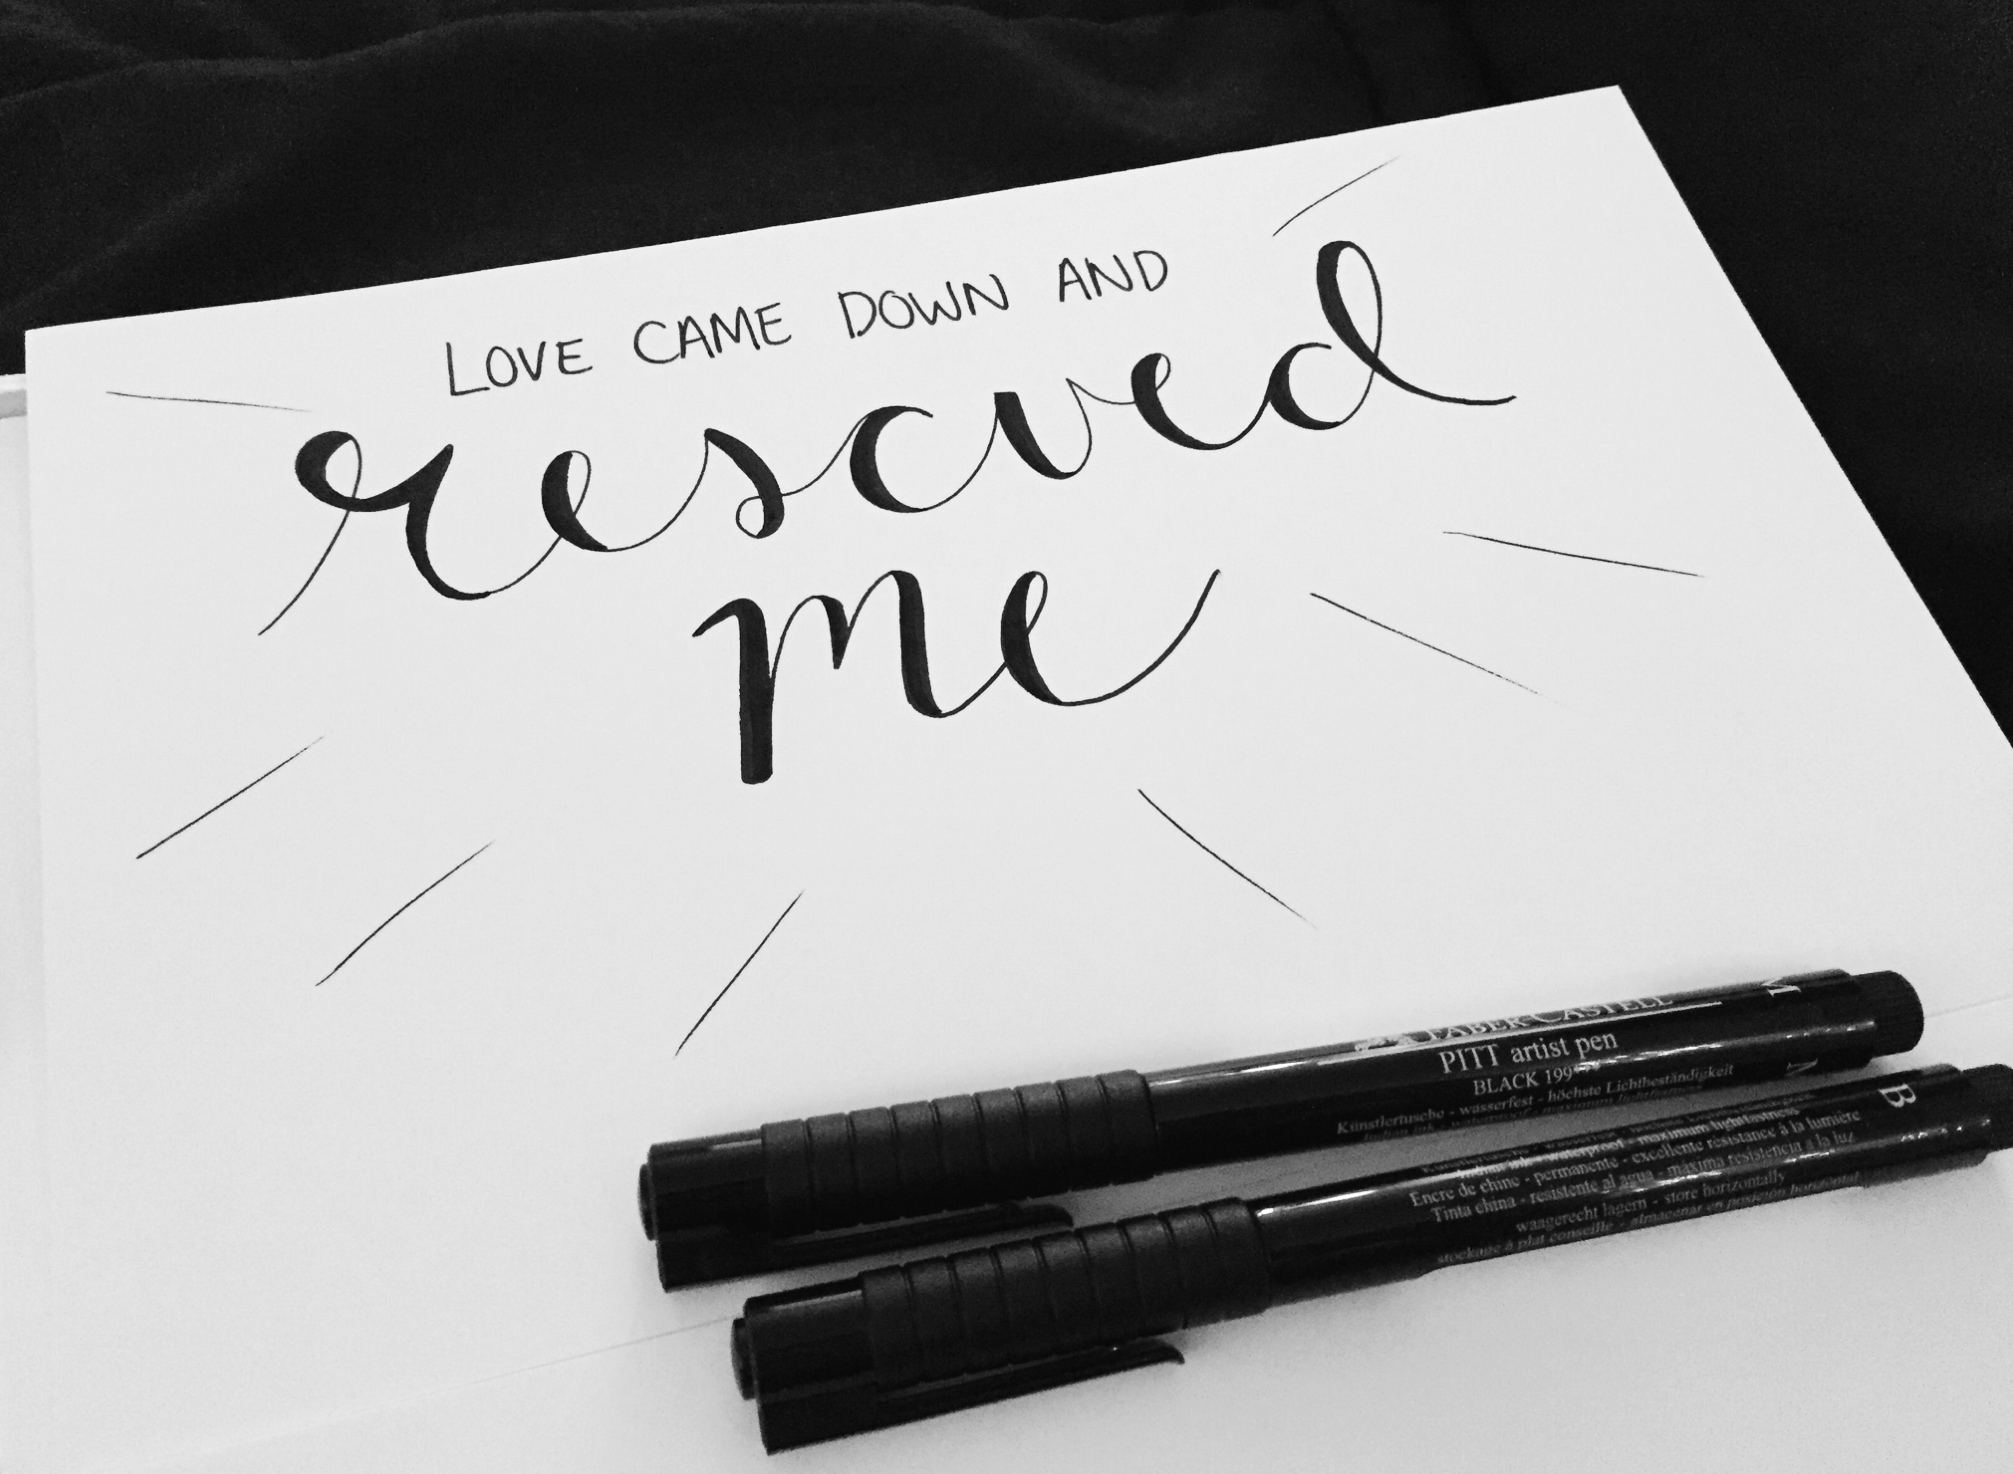 LOVE CAME DOWN AND
rescued
me
FABER-CASTELL
M
PITT artist pen
BLACK 199
Künstlertusche - wasserfest - höchste Lichtbeständigkeit
B
Indian ink - waterproof - maximum lightfastness
Encre de chine - permanente - excellente résistance à la lumière
Tinta china - resistente al agua - máxima resistencia a la luz
waagerecht lagern - store horizontally
stockage à plat conseillé - almacenar en posición horizontal